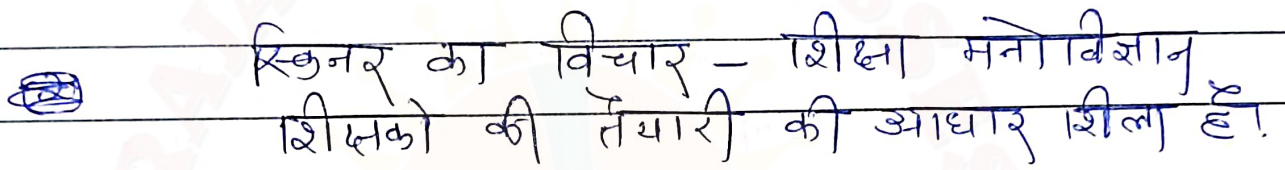 स्किनर का विचार – शिक्षा मनोविज्ञान
शिक्षको की तैयारी की आधार शिला है.